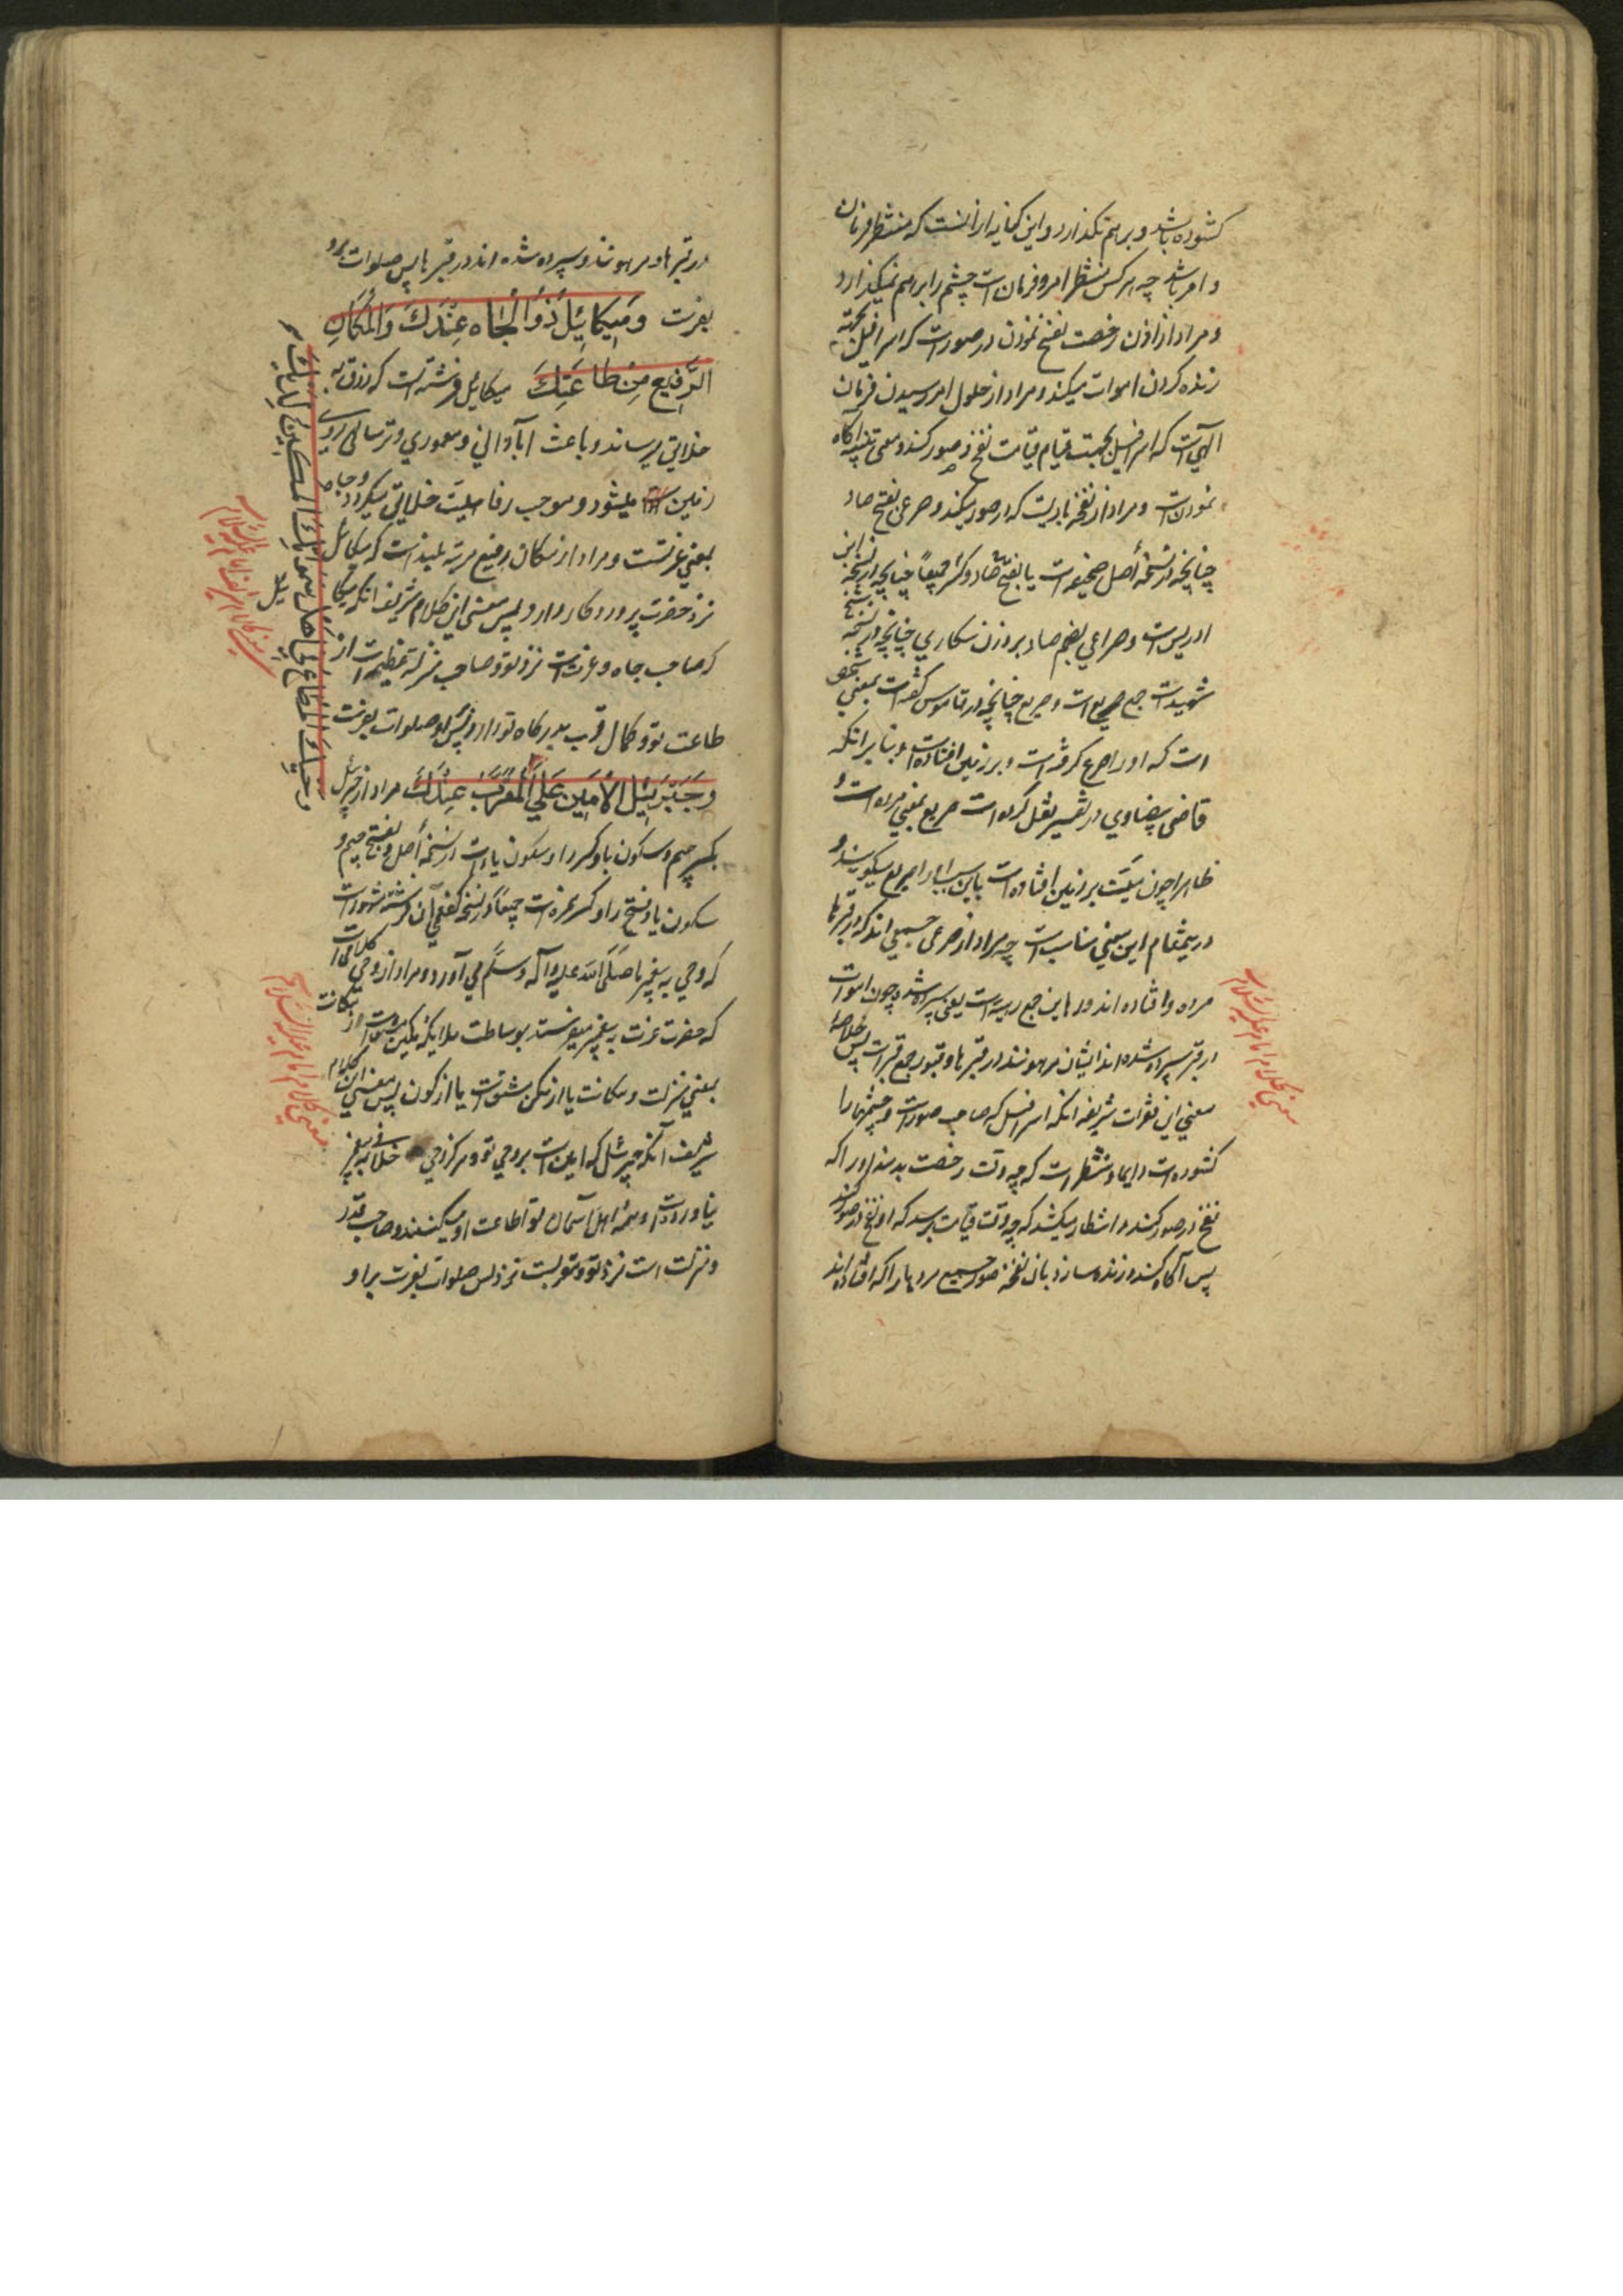 کشوده باشد و بر هم نکذارد و این کنایه از انست که منتظر فرمان
و امر باشد چه هر کس منتظر امر و فرمان است چشم را بر هم نمیکذارد
و مراد از اذن رخصت نفخ نمودن در صور است که اسرافیل بجهة
زنده کردن اموات میکند و مراد از حلول امر رسیدن فرمان
الهی است که اسرافیل بجهت قیام قیامت نفخ در صور کند و معنی تنبیه آکاه
نمودن است و مراد از نفخه بادیست که در صور میکند و صرعی بفتح صاد
چنانچه در نسخهٔ اصل صحیفه است یا بفتح صاد و کسر جمیعاً چنانچه در نسخهٔ ابن
ادریس است و صراعی بضم صاد بر وزن سکاری چنانچه در نسخهٔ شیخ
شهید است جمع صریع است و صریع چنانچه در قاموس گفته است بمعنی شخصی
است که او را صرع کرفته است و بر زمین افتاده است و بنابر انکه
قاضی بیضاوی در تفسیر نقل کرده است صریع بمعنی مرده است و
ظاهرا چون میّت بر زمین افتاده است باین سبب او را صریع میکویند و
در ینمقام این معنی مناسب است چه مراد از صرعی جمیعی اند که در قبرها
مرده و افتاده اند و رهاین جمع رهینه است یعنی سپرده شده و چون اموات
در قبر سپرده شده اند ایشان مرهونند در قبرها و قبور جمع قبر است پس خلاصهٔ
معنی این فقرات شریفه انکه اسرافیل که صاحب صور است و چشمها را
کشوده است دایما و منتظر است که چه وقت رخصت بدهند او را که
نفخ در صور کند و انتظار میکشد که چه وقت قیامت برسد که او نفخ در صور کند
پس آکاه کند و زنده سازد بان نفخه صور جمیع مردها را که افتاده اند
معنی کلام امام علیه السلام
در قبرها و مرهونند و سپرده شده اند در قبرها پس صلوات برو
بفرست وَمِیکَائِیلَ ذُو الْجَاهِ عِنْدَكَ وَالْمَکَانِ
الرَّفِیعِ مِنْ طَاعَتِكَ میکائیل فرشته است که رزق به
خلایق میرساند و باعث آبادانی و معموری و ترسالی روی
زمین میشود و موجب رفاهیّت خلایق میکردد و جاه
بمعنی عزّتست و مراد از مکان رفیع مرتبه بلند است که میکائیل
نزد حضرت پروردکار دارد پس معنی این کلام شریف انکه میکا
ئیل
که صاحب جاه و عزت است نزد تو و صاحب منزلة عظیم است از
طاعت تو و کمال قرب بدرکاه تو دارد پس بر او صلوات بفرست
وَجَبْرَئِیلَ الْأَمِینِ عَلَی الْمُقَرَّبُ عِنْدَكَ مراد از جبرئیل
بکسر جیم و سکون با و کسر را و سکون یا است در نسخهٔ اصل و بفتح جیم و
سکون با و فتح را و کسر همزه است جمیعاً در نسخهٔ کفعمی آن فرشته مشهور است
که وحی به پیغمبر ما صَلَّی اللّه علیه وآله وسلّم می آورد و مراد از وحی کلامی است
که حضرت عزت به پیغمبر میفرستد بوساطت ملایکه و مکین از مکانت
بمعنی منزلت و مکانت یا از مکن مشتق است یا از کون پس معنی این کلام
شریف آنکه جبرئیل که امین است بر وحی تو و هرکز در وحی خلافی به پیغمبر
نیاورده است و همهٔ اهل آسمان تو اطاعت او میکنند و صاحب قدر
و منزلت است نزد تو و مقربست نزد تو پس صلوات بفرست بر او
وَحْیِكَ الْمُطَاعُ فِي أَهْلِ سَمَوَاتِكَ الْمَکِینُ لَدَیْكَ
معنی کلام شریف امام علیه السلام
معنی کلام امام علیه السلام